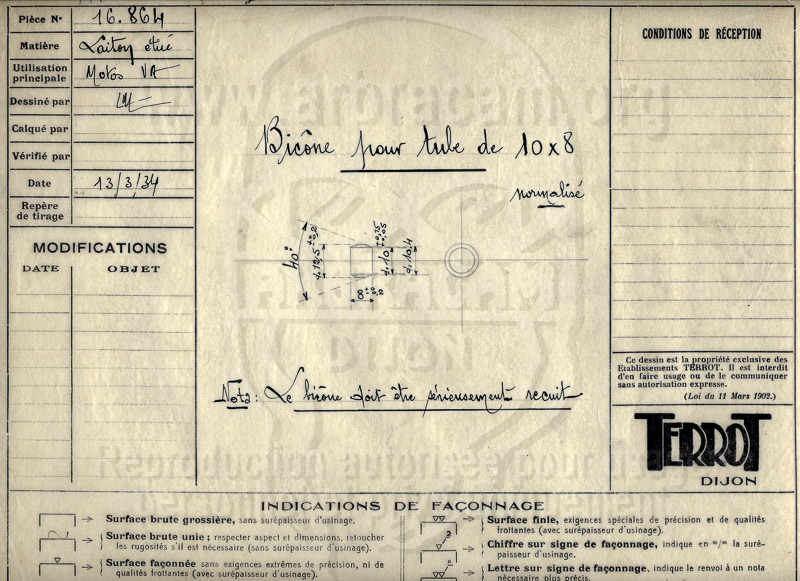 Pièce N° 16.864
Matière Laiton étiré
Utilisation principale Motos VA
Dessiné par
Calqué par
Vérifié par
Date 13/3/34
Repère de tirage
MODIFICATIONS
DATE OBJET
www.arbracam.org
Bicône pour tube de 10x8
normalisé
40°
12,5 ± 0,2
10 +0,15 +0,05
10,4
8 ± 0,2
DIJON
Nota: Le bicône doit être sérieusement recuit
Reproduction autorisée pour
CONDITIONS DE RÉCEPTION
Ce dessin est la propriété exclusive des
Etablissements TERROT. Il est interdit
d'en faire usage ou de le communiquer
sans autorisation expresse.
(Loi du 11 Mars 1902.)
TERROT
DIJON
INDICATIONS DE FAÇONNAGE
Surface brute grossière, sans surépaisseur d'usinage.
Surface brute unie ; respecter aspect et dimensions, retoucher
les rugosités s'il est nécessaire (sans surépaisseur d'usinage).
Surface façonnée sans exigences extrêmes de précision, ni de
qualités frottantes (avec surépaisseur d'usinage).
Surface finie, exigences spéciales de précision et de qualités
frottantes (avec surépaisseur d'usinage).
Chiffre sur signe de façonnage, indique en m/m la suré-
paisseur d'usinage.
Lettre sur signe de façonnage, indique le renvoi à un nota
nécessaire plus précis.